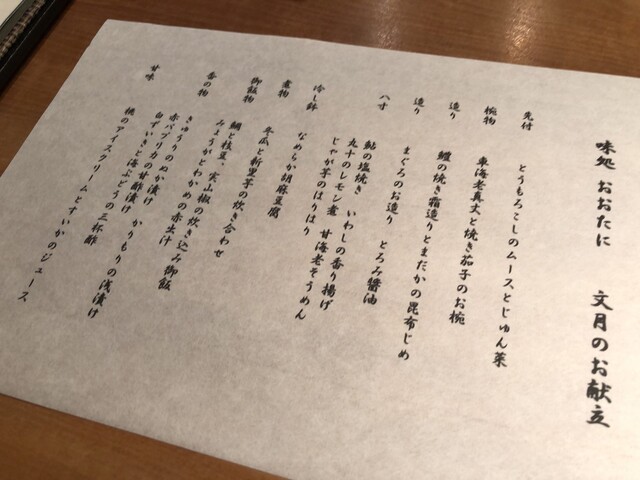 味処 おおたに 文月のお献立
先付 とうもろこしのムースとじゅん菜
椀物 車海老真丈と焼き茄子のお椀
造り 鱧の焼き霜造りとまだかの昆布じめ
造り まぐろのお造り とろみ醤油
八寸 鮎の塩焼き いわしの香り揚げ
丸十のレモン煮 甘海老そうめん
じゃが芋のはりはり
冷し鉢 なめらか胡麻豆腐
煮物 冬瓜と新里芋の炊き合わせ
御飯物 鯛と枝豆、実山椒の炊き込み御飯
みょうがとわかめの赤出汁
香の物 きゅうりのぬか漬け かりもりの浅漬け
赤パプリカの甘酢漬け
白ずいきと海ぶどうの三杯酢
甘味 桃のアイスクリームとすいかのジュース